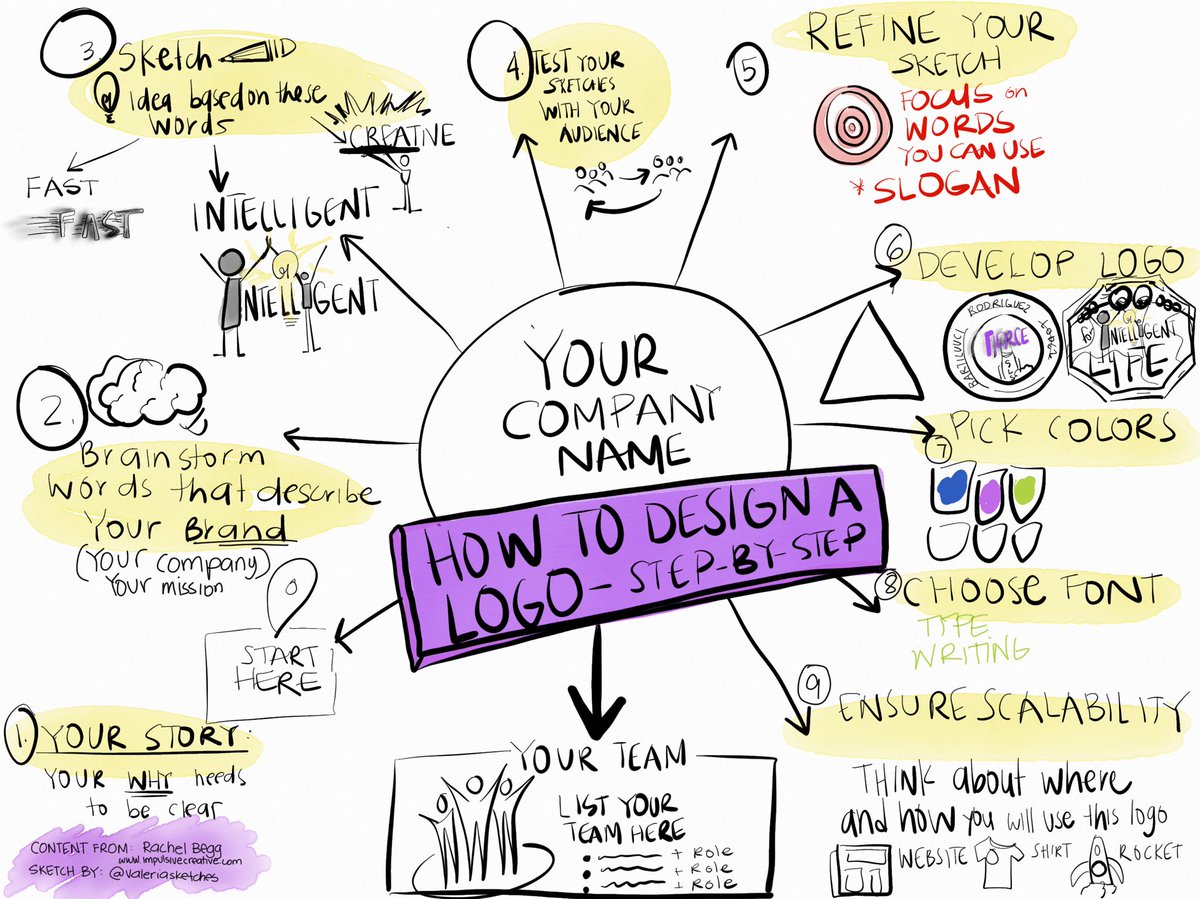 YOUR
COMPANY
NAME
HOW TO DESIGN A
LOGO - STEP-BY-STEP
START
HERE
1. YOUR STORY:
YOUR WHY needs
to be clear
2.
Brainstorm
words that describe
Your Brand
(Your company)
Your mission
3. Sketch
idea based on these
words
FAST
FAST
INTELLIGENT
INTELLIGENT
CREATIVE
4. TEST YOUR
SKETCHES
WITH YOUR
AUDIENCE
5
REFINE YOUR
SKETCH
FOCUS on
WORDS
YOU CAN USE
* SLOGAN
6
DEVELOP LOGO
RODRIGUEZ
FIERCE
INTELLIGENT
LIFE
7
PICK COLORS
8
CHOOSE FONT
TYPE
WRITING
9
ENSURE SCALABILITY
THINK about where
and how you will use this logo
WEBSITE
SHIRT
ROCKET
YOUR TEAM
LIST YOUR
TEAM HERE
+ Role
+ Role
+ Role
CONTENT FROM: Rachel Begg
www.impulsivecreative.com
SKETCH BY: @valeriasketches